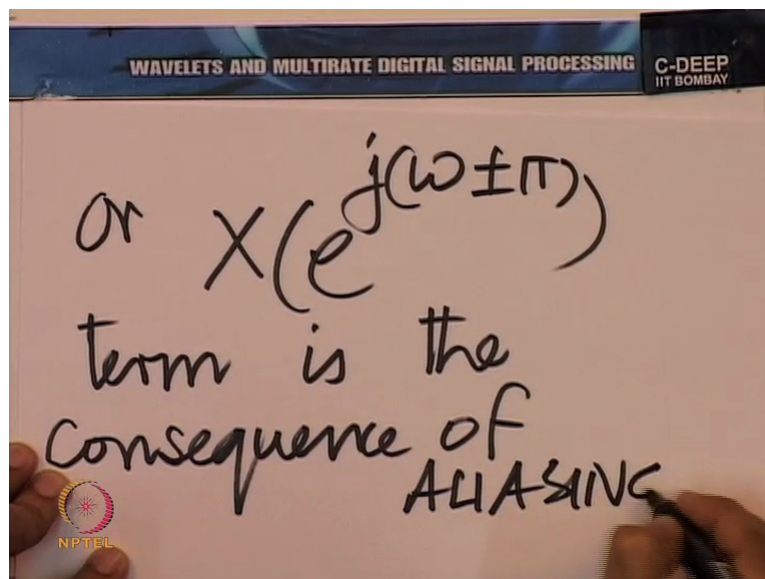 WAVELETS AND MULTIRATE DIGITAL SIGNAL PROCESSING
C-DEEP
IIT BOMBAY
or X(e^{j(ω±π)})
term is the
consequence of
ALIASING
NPTEL